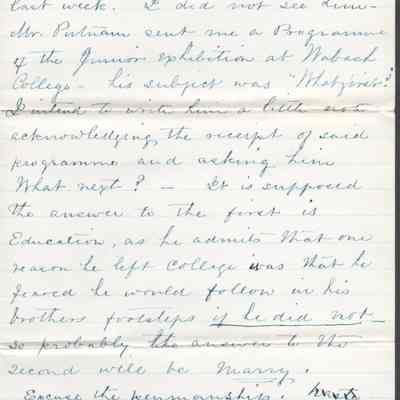 last week. I did not see him -
Mr. Putnam sent me a Programme
of the Junior exhibition at Wabash
College - his subject was "What first?"
I intend to write him a little note
acknowledging the receipt of said
programme and asking him
What next? - It is supposed
the answer to the first is
Education, as he admits that one
reason he left College was that he
feared he would follow in his
brothers footsteps if he did not -
so probably the answer to the
second will be Marry.
Excuse the penmanship.